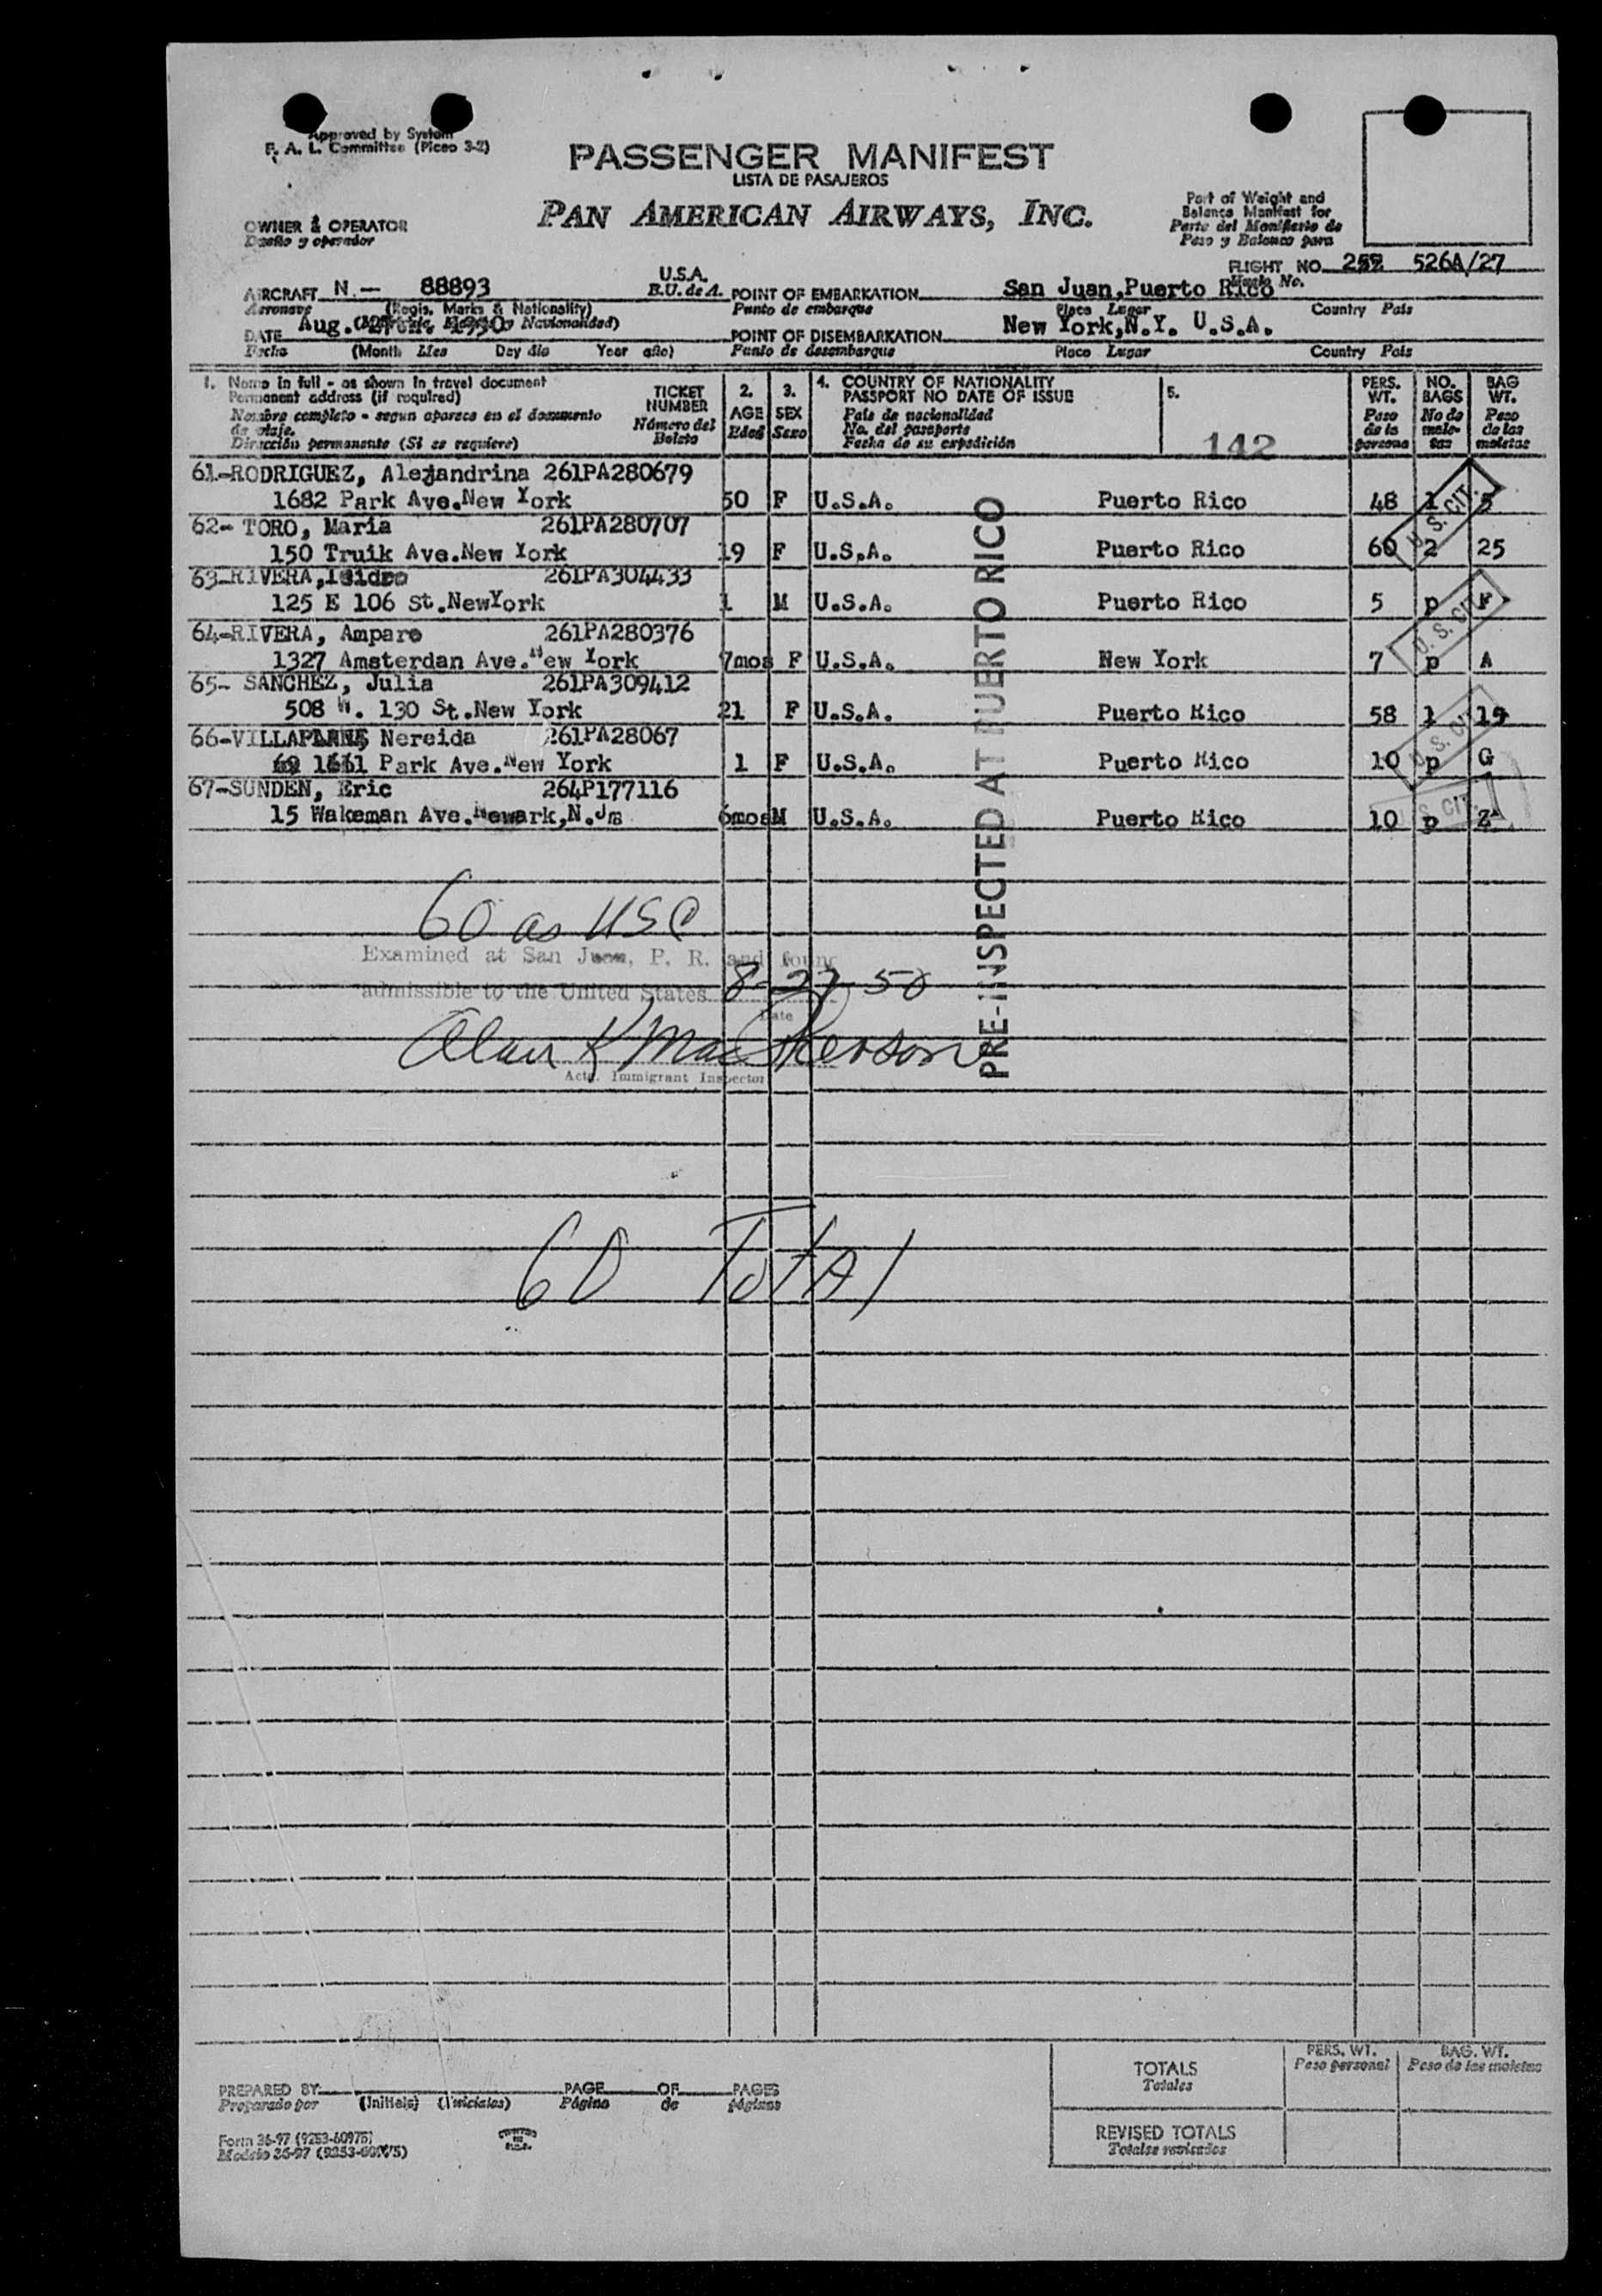 Approved by System
F. A. L. Committee (Picao 3-2)
PASSENGER MANIFEST
LISTA DE PASAJEROS
PAN AMERICAN AIRWAYS, INC.
OWNER & OPERATOR
Dueño y operador
Part of Weight and
Balance Manifest for
Parte del Manifiesto de
Peso y Balance para
FLIGHT NO. 526A/27
Vuelo No.
AIRCRAFT N.— 88893 U.S.A. POINT OF EMBARKATION San Juan, Puerto Rico
Aeronave (Regis. Marks & Nationality) E.U. de A. Punto de embarque Place Lugar Country Pais
DATE Aug. 1950 POINT OF DISEMBARKATION New York,N.Y. U.S.A.
Fecha (Month Mes Day dia Year año) Punto de desembarque Place Lugar Country Pais
1. Name in full - as shown in travel document
Permanent address (if required)
Nombre completo - segun aparece en el documento
de viaje.
Dirección permanente (Si es requiere)
TICKET
NUMBER
Número del
Boleto
2.
AGE
Edad
3.
SEX
Sexo
4. COUNTRY OF NATIONALITY
PASSPORT NO DATE OF ISSUE
Pais de nacionalidad
No. del pasaporte
Fecha de su expedición
5.
142
PERS.
WT.
Peso
de la
persona
NO.
BAGS
No de
male-
tas
BAG
WT.
Peso
de las
maletas
61-RODRIGUEZ, Alejandrina 261PA280679
1682 Park Ave.New York 50 F U.S.A. Puerto Rico 48 1 5
62- TORO, Maria 261PA280707
150 Truik Ave.New York 19 F U.S.A. Puerto Rico 60 2 25
63-RIVERA,Isidro 261PA304433
125 E 106 St.NewYork 1 M U.S.A. Puerto Rico 5 p F
64-RIVERA, Amparo 261PA280376
1327 Amsterdan Ave.New York 7mos F U.S.A. New York 7 p A
65- SANCHEZ, Julia 261PA309412
508 W. 130 St.New York 21 F U.S.A. Puerto Rico 58 1 19
66- Nereida 261PA28067
Park Ave.New York 1 F U.S.A. Puerto Rico 10 p G
67-SUNDEN, Eric 264P177116
15 Wakeman Ave.Newark,N.J. 6mos M U.S.A. Puerto Rico 10 p Z
U. S. CIT.
U. S. CIT.
U. S. CIT.
U. S. CIT.
PRE-INSPECTED AT PUERTO RICO
60 as USC
Examined at San Juan, P. R. and found
admissible to the United States 8-27-50
Date
Alan K MacPherson
Actg. Immigrant Inspector
60 Total
TOTALS
Totales
PERS. WT.
Peso personal
BAG. WT.
Peso de las maletas
REVISED TOTALS
Totales revisados
PREPARED BY PAGE OF PAGES
Preparado por (Initials) (Iniciales) Página de páginas
Form 36-97 (9253-60975)
Modelo 36-97 (9253-60975)